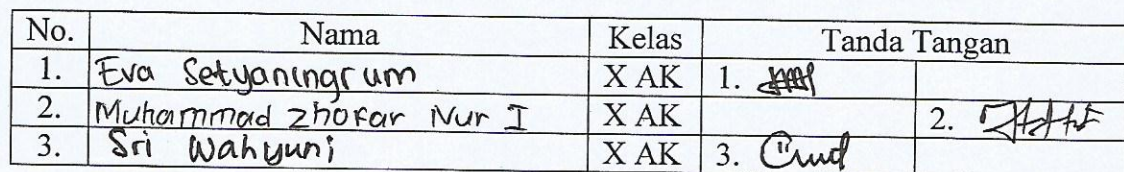 No. Nama Kelas Tanda Tangan
1. Eva Setyaningrum X AK 1.
2. Muhammad Zhofar Nur I X AK 2.
3. Sri Wahyuni X AK 3.